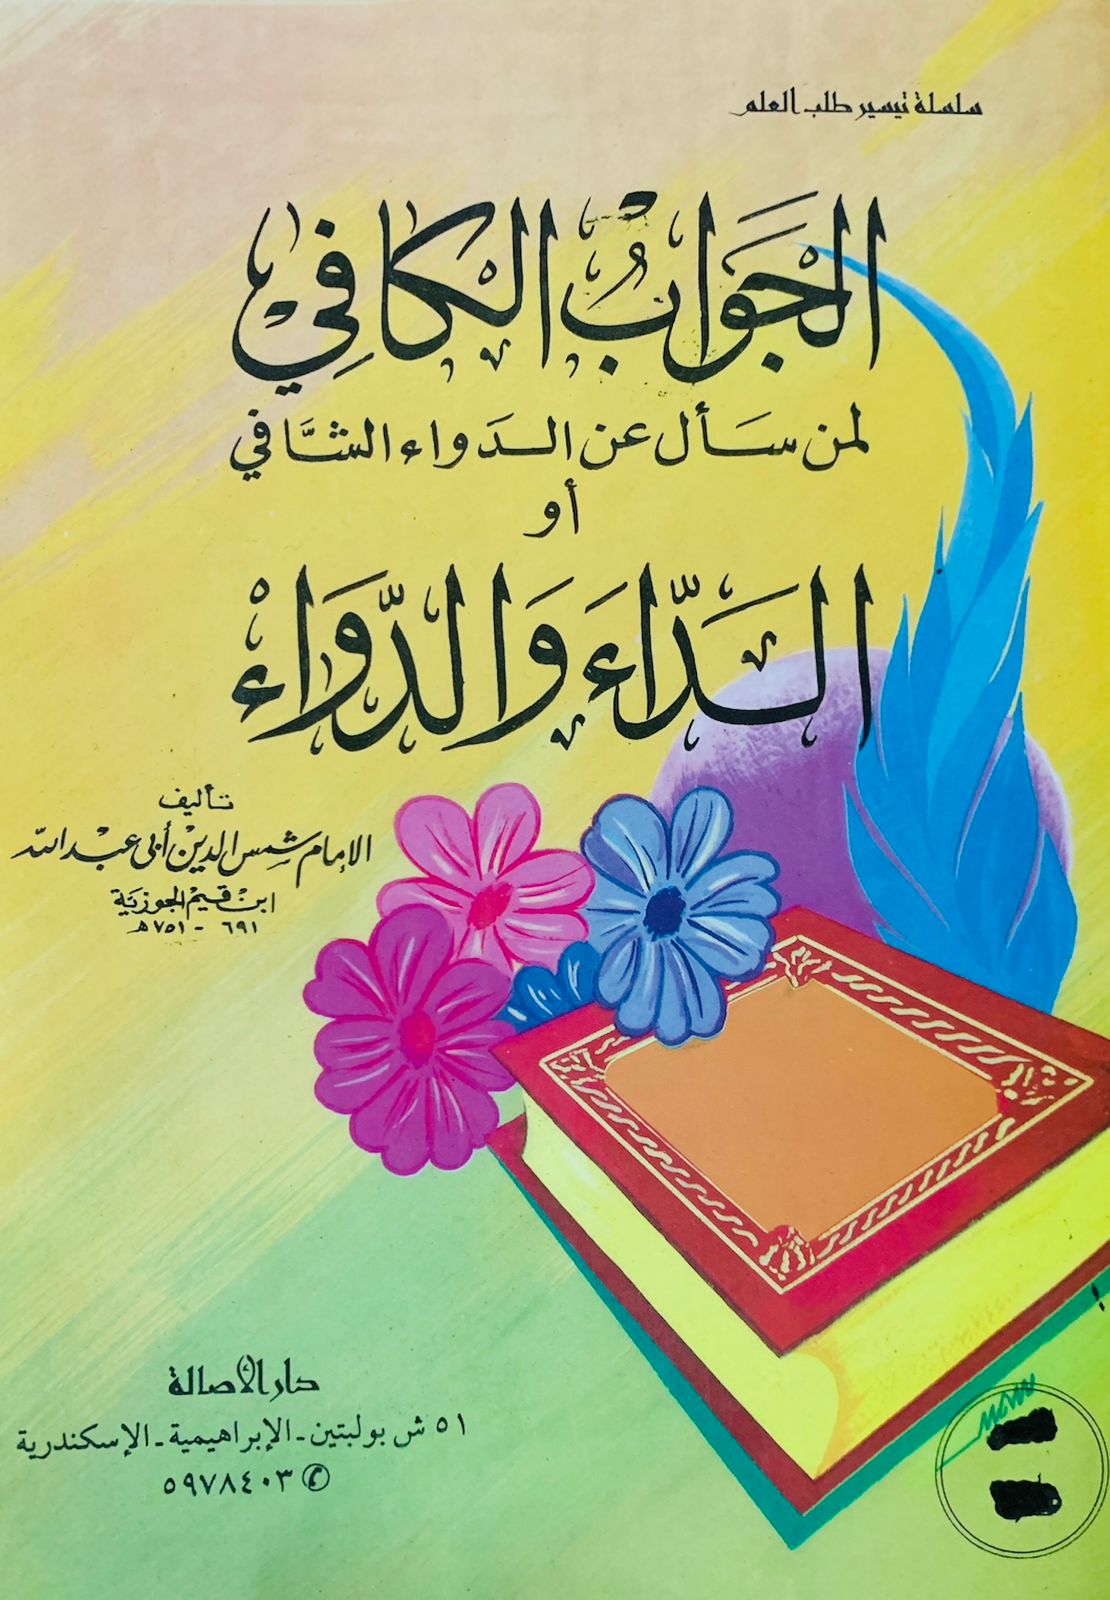 سلسلة تيسير طلب العلم
الجَوَابُ الكَافِي
لمن سَأل عن الدَواء الشَّافي
أو
الدَّاءَ وَالدَّوَاءْ
تأليف
الإمام شمس الدين أبي عبد الله
ابن قيم الجوزية
٦٩١ - ٧٥١هـ
دار الأصالة
٥١ ش بولبتين - الإبراهيمية - الإسكندرية
٥٩٧٨٤٠٣